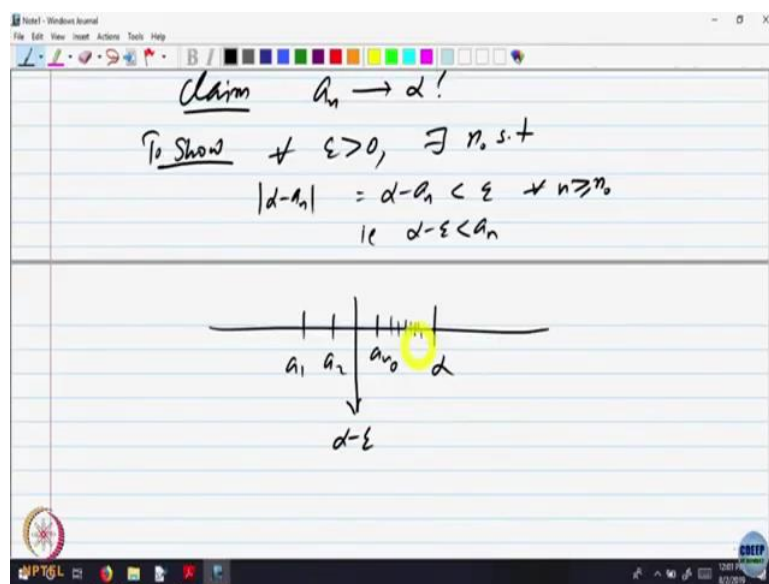 Note1 - Windows Journal
File Edit View Insert Actions Tools Help
Claim aₙ → α!
To Show ∀ ε>0, ∃ n₀ s.t
|α-aₙ| = α-aₙ < ε ∀ n≥n₀
ie α-ε<aₙ
a₁ a₂ aₙ₀ α
α-ε
NPTEL
CDEEP
12:01 PM
8/2/2019